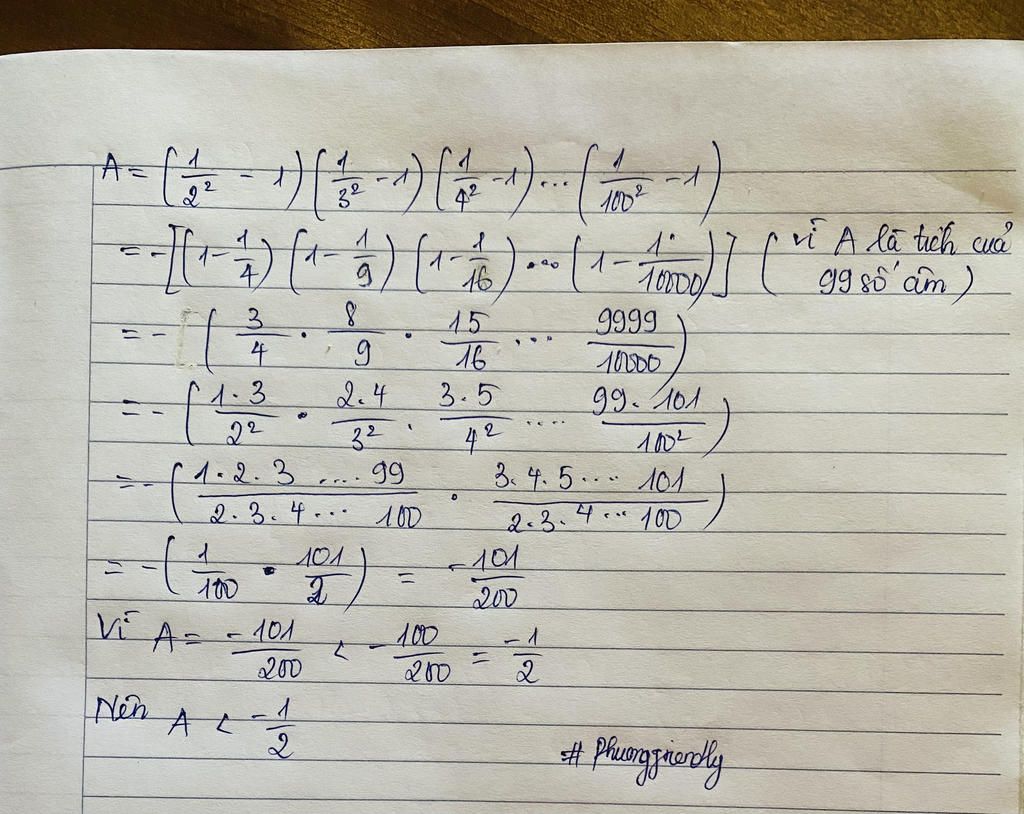 A = (1/2² - 1)(1/3² - 1)(1/4² - 1)...(1/100² - 1)
= -[(1 - 1/4)(1 - 1/9)(1 - 1/16)...(1 - 1/10000)] (vì A là tích của
99 số âm)
= - (3/4 . 8/9 . 15/16 ... 9999/10000)
= - (1.3/2² . 2.4/3² . 3.5/4² .... 99.101/100²)
= - (1.2.3 .... 99/2.3.4... 100 . 3.4.5... 101/2.3.4...100)
= -(1/100 . 101/2) = -101/200
Vì A = -101/200 < -100/200 = -1/2
Nên A < -1/2
# Phuongfriendly